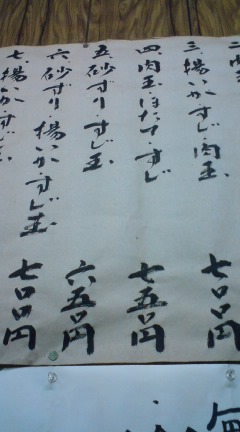 三 揚いか すじ 肉玉 七〇〇円
四 肉玉 ほたて すじ 七五〇円
五 砂ずり すじ玉 六五〇円
六 砂ずり 揚いか すじ玉 七〇〇円
七 揚いか